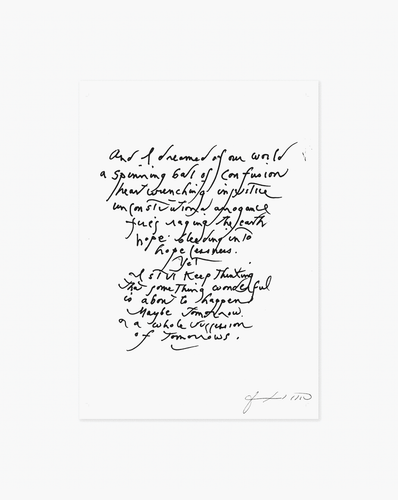 And I dreamed of our world
a spinning ball of confusion
heart wrenching injustice
unconstitutional arrogance
fires raging the earth
hope bleeding into
hopelessness.
Yet
I still keep thinking
that something wonderful
is about to happen
Maybe Tomorrow.
or a whole succession
of Tomorrows.